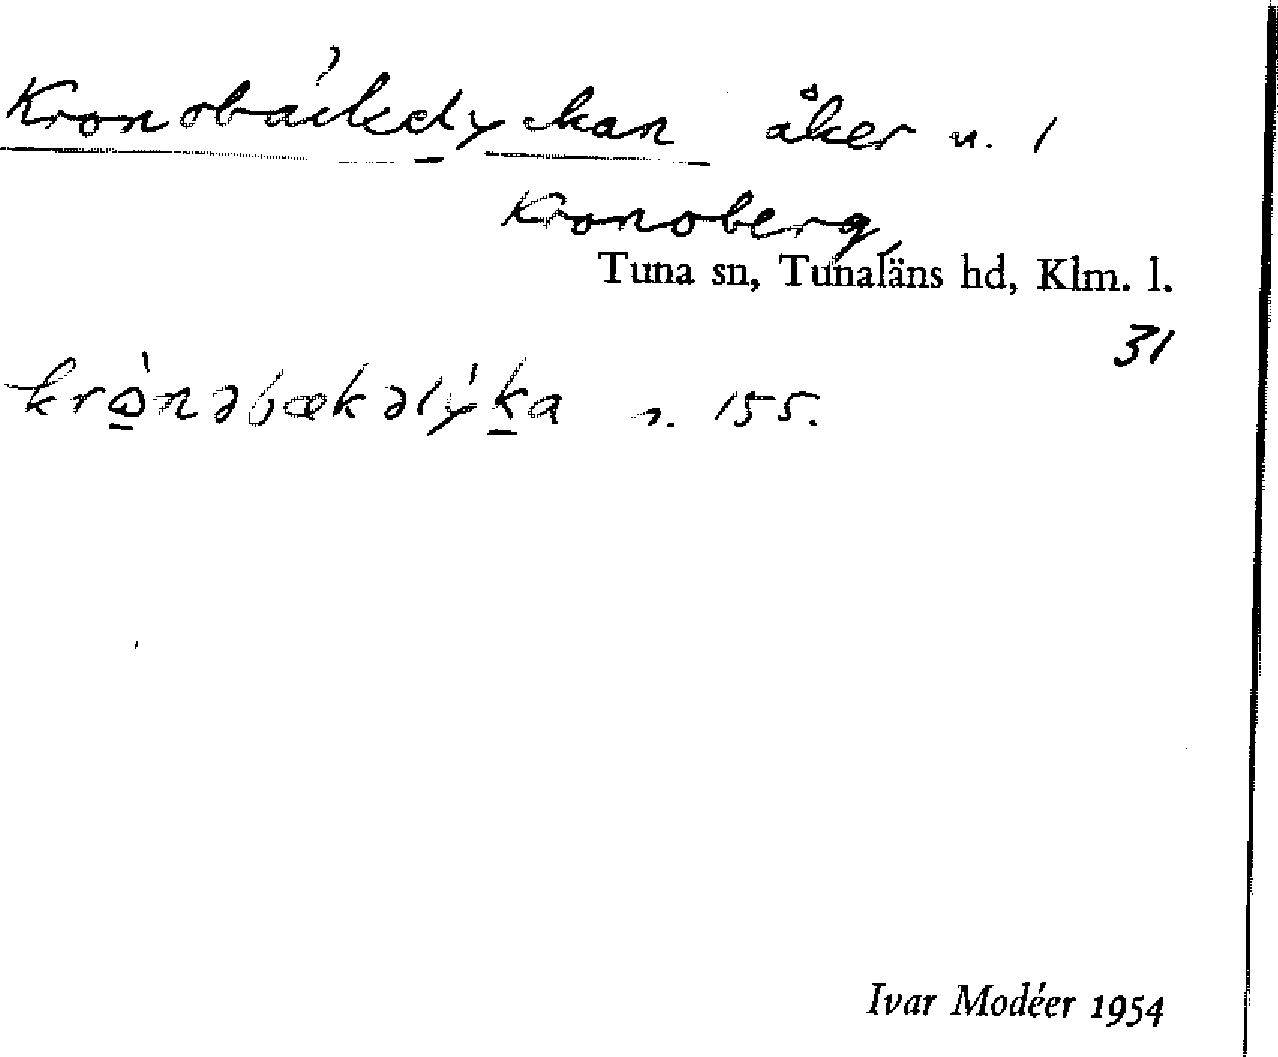 Kronobäckelyckan åker n. 1
Kronoberg,
Tuna sn, Tunaläns hd, Klm. l.
31
155.
Ivar Modéer 1954